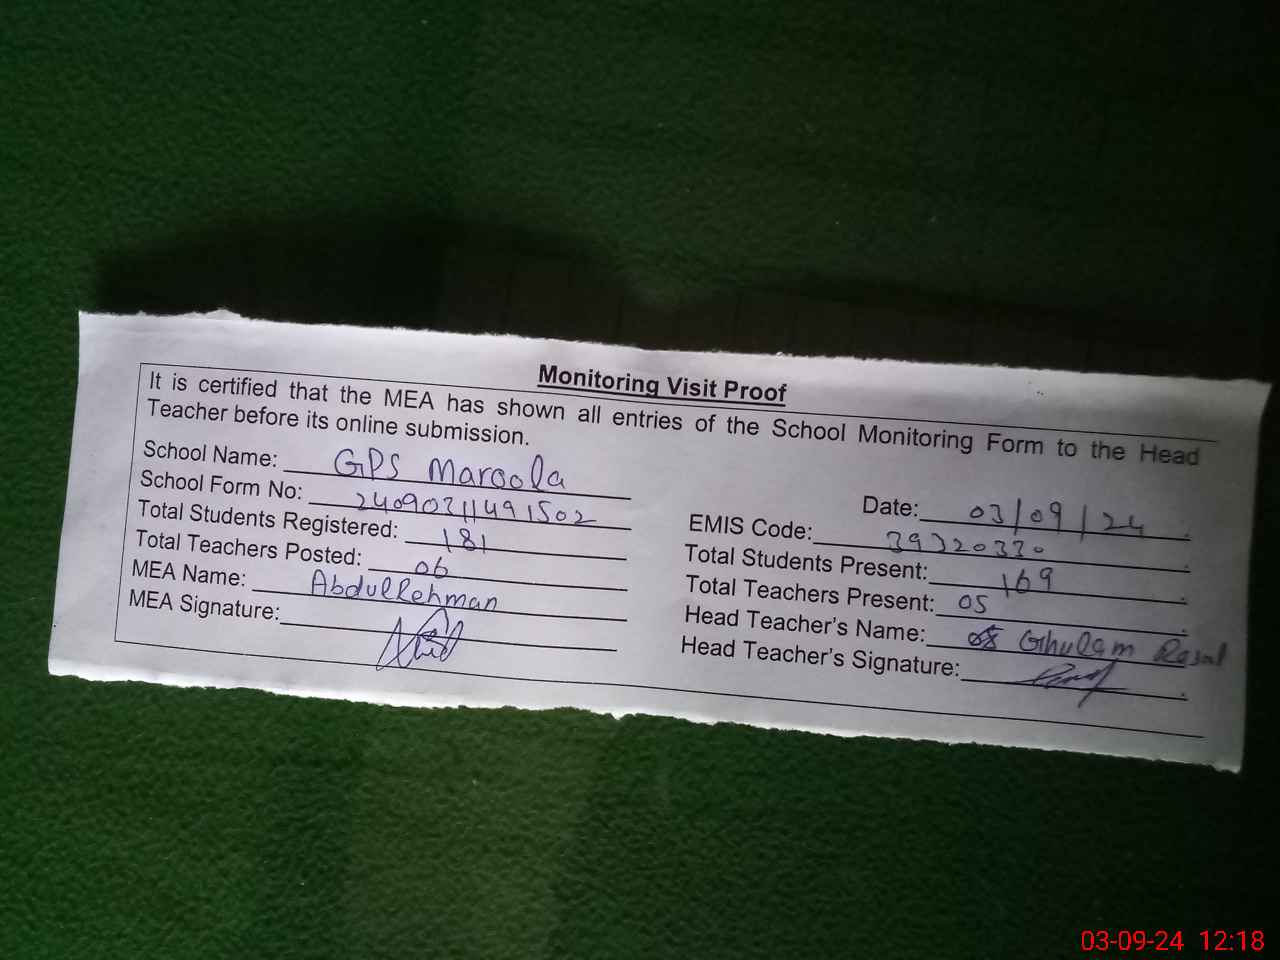 Monitoring Visit Proof
It is certified that the MEA has shown all entries of the School Monitoring Form to the Head
Teacher before its online submission.
School Name: GPS Maroola
Date: 03/09/24
School Form No: 24090311491502
EMIS Code: 39320330
Total Students Registered: 181
Total Students Present: 169
Total Teachers Posted: 06
Total Teachers Present: 05
MEA Name: AbdulRehman
Head Teacher's Name: Ghulam Rasul
MEA Signature:
Head Teacher's Signature:
03-09-24 12:18